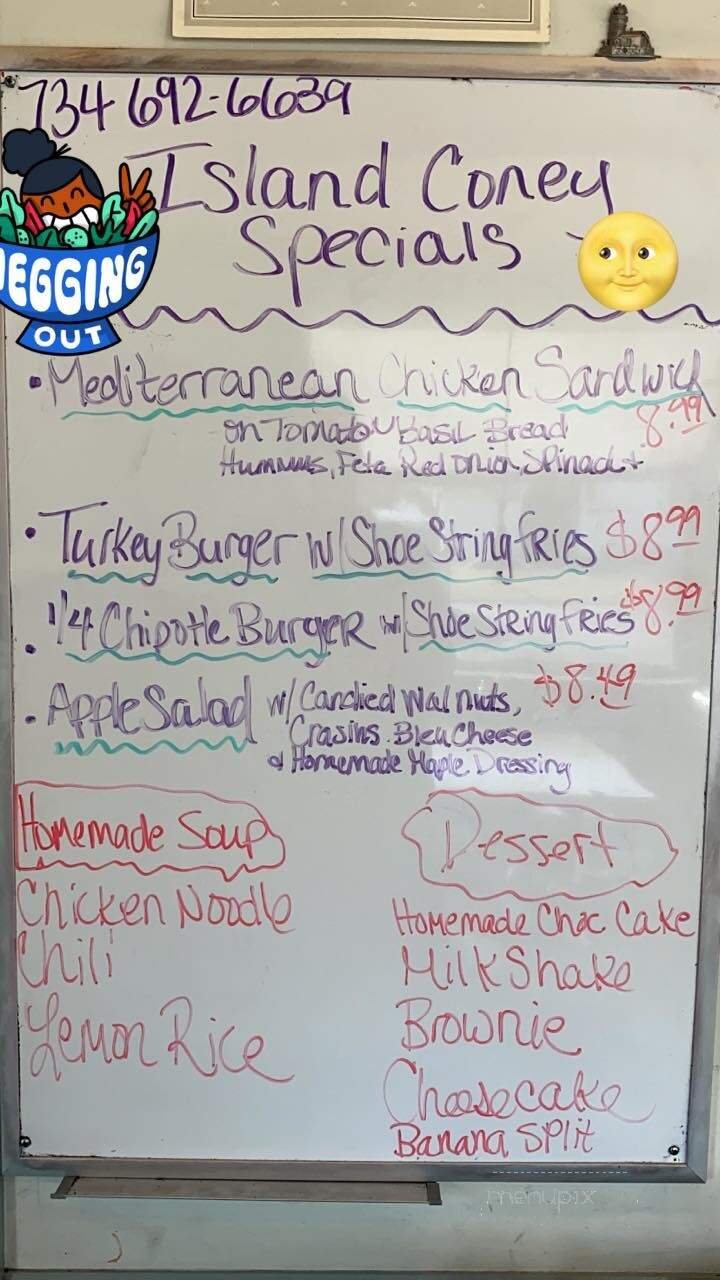 734-692-6639
Island Coney
Specials
VEGGING
OUT
• Mediterranean Chicken Sandwich
8.99
on Tomato Basil Bread
Hummus, Feta Red Onion, Spinach
• Turkey Burger w/ Shoe String fries $8.99
• 1/4 Chipotle Burger w/ Shoe String fries $8.99
• Apple Salad w/ Candied Walnuts, $8.49
Crasins. Bleu Cheese
& Homemade Maple Dressing
Homemade Soup
Chicken Noodle
Chili
Lemon Rice
Dessert
Homemade Choc Cake
Milk Shake
Brownie
Cheesecake
Banana Split
menupix